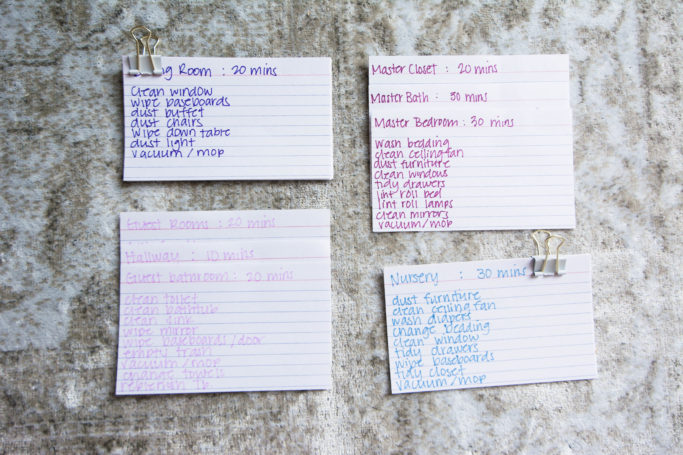 ng Room : 20 mins
clean window
wipe baseboards
dust buffet
dust chairs
wipe down table
dust light
vacuum/mop
Master Closet : 20 mins
Master Bath : 30 mins
Master Bedroom : 30 mins
wash bedding
clean ceiling fan
dust furniture
clean windows
tidy drawers
lint roll bed
lint roll lamps
clean mirrors
vacuum/mop
Guest Rooms : 20 mins
Hallway : 10 mins
Guest bathroom : 20 mins
clean toilet
clean bathtub
clean sink
wipe mirror
wipe baseboards/door
empty trash
vacuum/mop
change towels
replenish
Nursery : 30 mins
dust furniture
clean ceiling fan
wash diapers
change bedding
clean window
tidy drawers
wipe baseboards
tidy closet
vacuum/mop